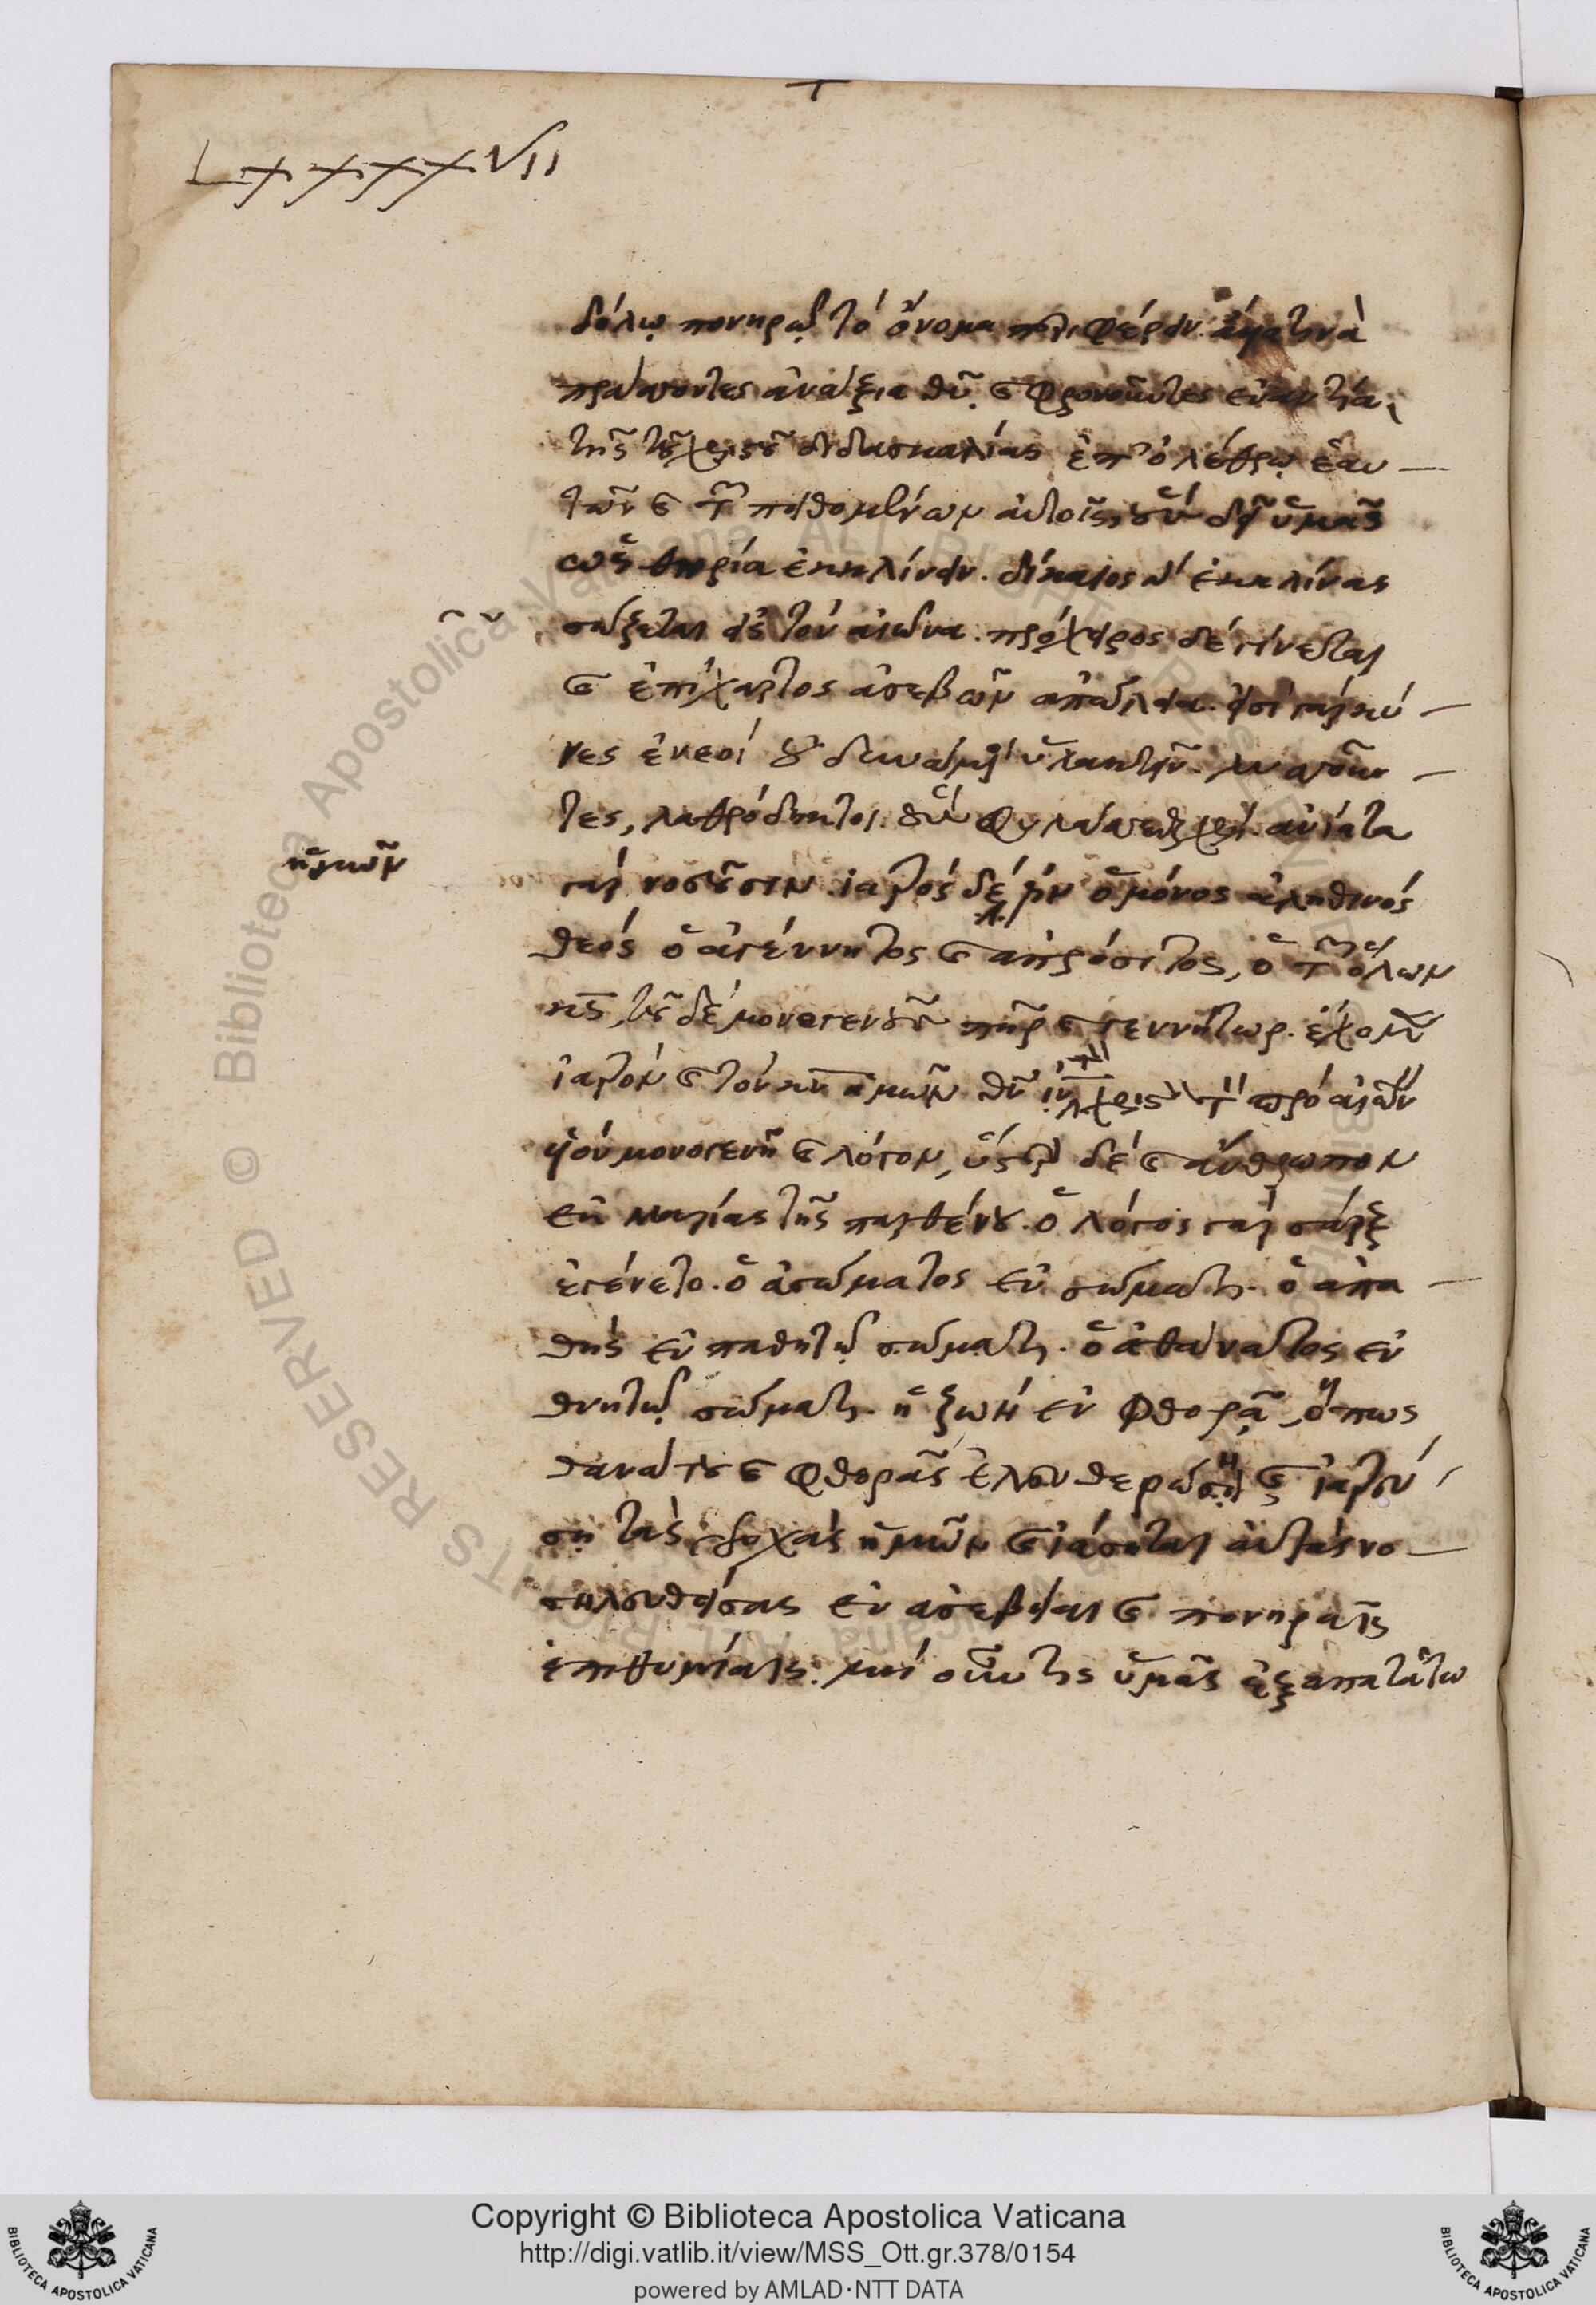 LXXXXVII
δόλῳ πονηρῷ τὸ ὄνομα περιφέρειν ἄμα τινὰ
πράσσοντες ἀνάξια θῦ. καὶ φρονοῦντες ἐναντία
τῆς τοῦ χριστοῦ διδασκαλίας ἐπ' ὀλέθρῳ ἑαυ–
τῶν καὶ τῶν πειθομένων αὐτοῖς, οὓς δεῖ ὑμᾶς
ὡς θηρία ἐκκλίνειν. δίκαιος γὰρ ἐκκλίνας
σώζεται εἰς τὸν αἰῶνα. πρόχειρος δὲ γίνεται
καὶ ἐπίχαρτος ἀσεβῶν ἀπώλεια. εἰσὶ γὰρ κύ–
νες ἐνεοὶ οὐ δυνάμενοι ὑλακτεῖν. λυσσῶν–
τες, λαθρόδηκται. οὓς φυλάσσεσθαι χρή. ἀνίατα
ἡμῶν
γὰρ νοσοῦσιν. ἰατρὸς δέ ἐστιν ὁ μόνος ἀληθινὸς
θεὸς ὁ ἀγέννητος καὶ ἀπρόσιτος, ὁ τῶν ὅλων
κς, τοῦ δὲ μονογενοῦς πηρ καὶ γεννήτωρ. ἔχομεν
ἰατρὸν καὶ τὸν κν ἡμῶν θν ιν χριστὸν τὸν πρὸ αἰώνων
υἱὸν μονογενῆ καὶ λόγον, ὕστερον δὲ καὶ ἄνθρωπον
ἐκ μαρίας τῆς παρθένου. ὁ λόγος γὰρ σὰρξ
ἐγένετο. ὁ ἀσώματος ἐν σώματι. ὁ ἀπα–
θὴς ἐν παθητῷ σώματι. ὁ ἀθάνατος ἐν
θνητῷ σώματι. ἡ ζωὴ ἐν φθορᾷ, ὅπως
θανάτου καὶ φθορᾶς ἐλευθερώσῃ καὶ ἰατρεύ–
σῃ τὰς ψυχὰς ἡμῶν καὶ ἰάσηται αὐτὰς νο–
σηλευθείσας ἐν ἀσεβείαι καὶ πονηραῖς
ἐπιθυμίαις. μὴ οὖν τις ὑμᾶς ἐξαπατάτω
Copyright © Biblioteca Apostolica Vaticana
http://digi.vatlib.it/view/MSS_Ott.gr.378/0154
powered by AMLAD·NTT DATA